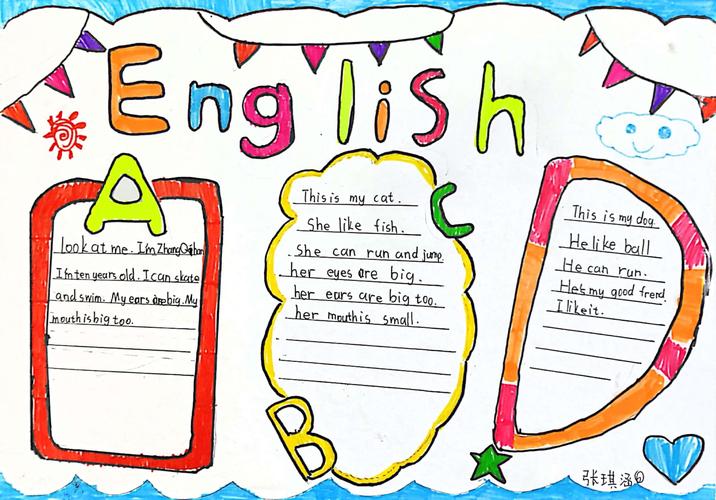 English
A
look at me. I'm Zhang Qihan
I'm ten years old. I can skate
and swim. My ears are big. My
mouth is big too.
This is my cat.
She like fish.
She can run and jump.
her eyes are big.
her ears are big too.
her mouth is small.
B
C
This is my dog.
He like ball
He can run.
He's my good frend.
I like it.
D
张琪涵